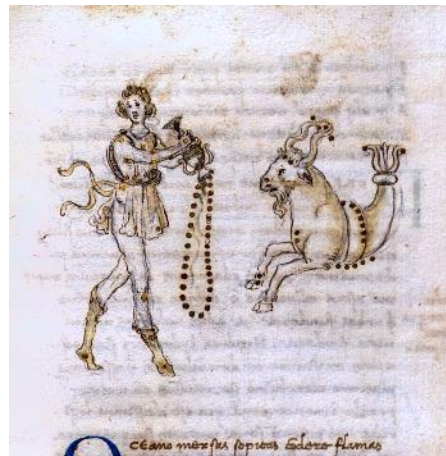 OCEano mersus sopitas ꝯdere flamas